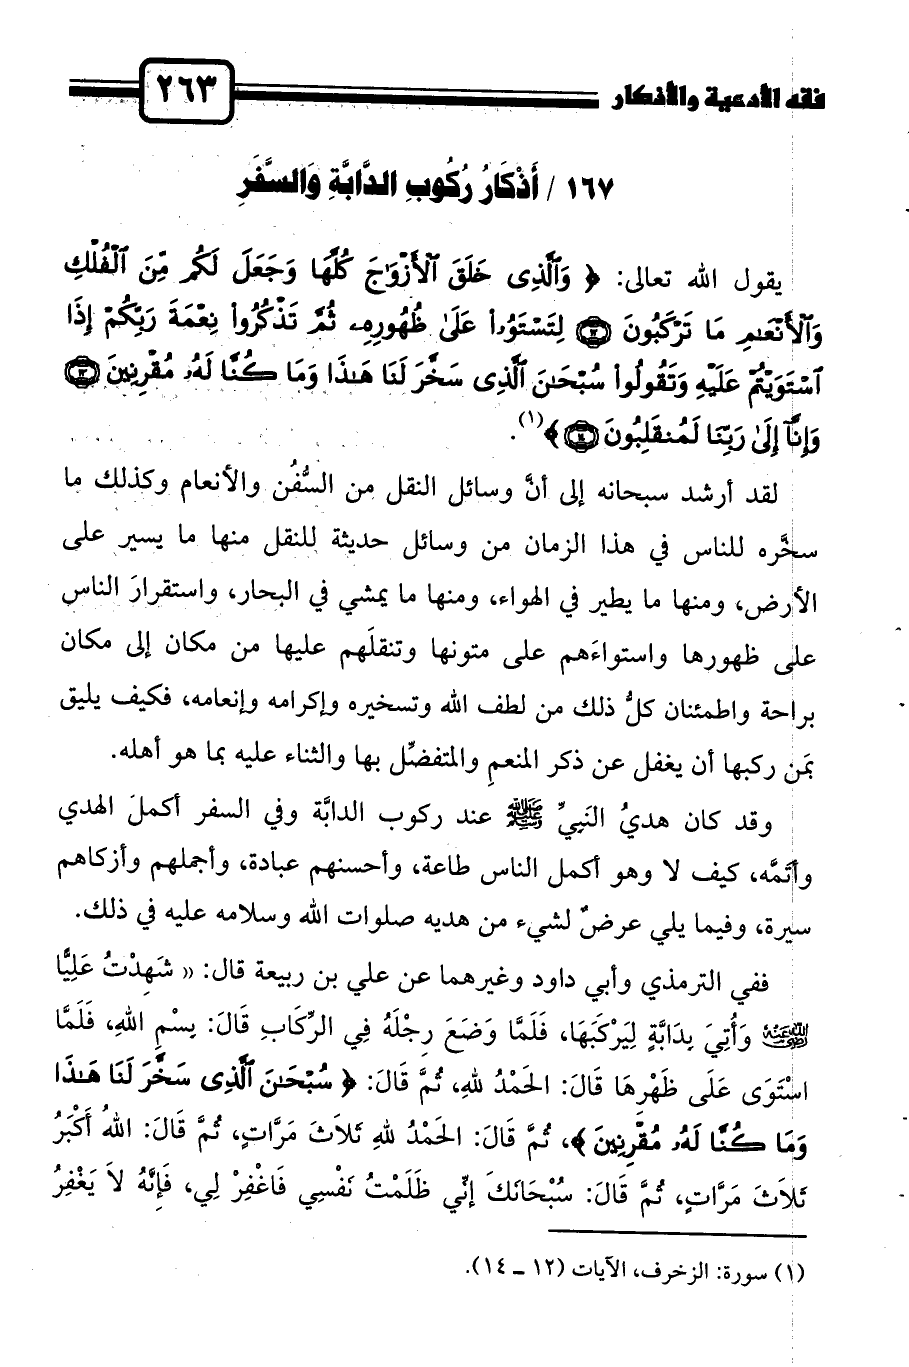 فقه الأدعية والأذكار
٢٦٣
١٦٧ / أَذْكَارُ رُكُوبِ الدَّابَّةِ وَالسَّفَرِ
يقول الله تعالى: ﴿ وَٱلَّذِى خَلَقَ ٱلْأَزْوَٰجَ كُلَّهَا وَجَعَلَ لَكُم مِّنَ ٱلْفُلْكِ
وَٱلْأَنْعَـٰمِ مَا تَرْكَبُونَ ١٢ لِتَسْتَوُۥا۟ عَلَىٰ ظُهُورِهِۦ ثُمَّ تَذْكُرُوا۟ نِعْمَةَ رَبِّكُمْ إِذَا
ٱسْتَوَيْتُمْ عَلَيْهِ وَتَقُولُوا۟ سُبْحَـٰنَ ٱلَّذِى سَخَّرَ لَنَا هَـٰذَا وَمَا كُنَّا لَهُۥ مُقْرِنِينَ ١٣
وَإِنَّآ إِلَىٰ رَبِّنَا لَمُنقَلِبُونَ ١٤ ﴾(١).
لقد أرشد سبحانه إلى أنَّ وسائل النقل من السُّفُن والأنعام وكذلك ما
سخَّره للناس في هذا الزمان من وسائل حديثة للنقل منها ما يسير على
الأرض، ومنها ما يطير في الهواء، ومنها ما يمشي في البحار، واستقرارَ الناسِ
على ظهورها واستواءَهم على متونها وتنقلَهم عليها من مكان إلى مكان
براحة واطمئنان كلُّ ذلك من لطف الله وتسخيره وإكرامه وإنعامه، فكيف يليق
بمَن ركبها أن يغفل عن ذكر المنعمِ والمتفضِّل بها والثناء عليه بما هو أهله.
وقد كان هديُ النَبيِّ ﷺ عند ركوب الدابَّة وفي السفر أكملَ الهدي
وأتمَّه، كيف لا وهو أكمل الناس طاعة، وأحسنهم عبادة، وأجملهم وأزكاهم
سيرة، وفيما يلي عرضٌ لشيء من هديه صلوات الله وسلامه عليه في ذلك.
ففي الترمذي وأبي داود وغيرهما عن علي بن ربيعة قال: (( شَهِدْتُ عَلِيًّا
رضي الله عنه وَأُتِيَ بِدَابَّةٍ لِيَرْكَبَهَا، فَلَمَّا وَضَعَ رِجْلَهُ فِي الرِّكَابِ قَالَ: بِسْمِ اللهِ، فَلَمَّا
اسْتَوَى عَلَى ظَهْرِهَا قَالَ: الحَمْدُ للهِ، ثُمَّ قَالَ: ﴿ سُبْحَـٰنَ ٱلَّذِى سَخَّرَ لَنَا هَـٰذَا
وَمَا كُنَّا لَهُۥ مُقْرِنِينَ ﴾، ثُمَّ قَالَ: الحَمْدُ للهِ ثَلاَثَ مَرَّاتٍ، ثُمَّ قَالَ: اللهُ أَكْبَرُ
ثَلاَثَ مَرَّاتٍ، ثُمَّ قَالَ: سُبْحَانَكَ إِنِّي ظَلَمْتُ نَفْسِي فَاغْفِرْ لِي، فَإِنَّهُ لاَ يَغْفِرُ
(١) سورة: الزخرف، الآيات (١٢ ـ ١٤).